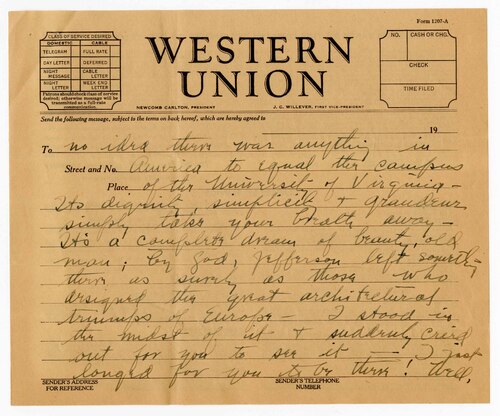 Form 1207-A
CLASS OF SERVICE DESIRED
DOMESTIC CABLE
TELEGRAM FULL RATE
DAY LETTER DEFERRED
NIGHT MESSAGE CABLE LETTER
NIGHT LETTER WEEK END LETTER
Patrons should check class of service desired; otherwise message will be transmitted as a full-rate communication.
WESTERN
UNION
NEWCOMB CARLTON, PRESIDENT J. C. WILLEVER, FIRST VICE-PRESIDENT
NO. CASH OR CHG.
CHECK
TIME FILED
Send the following message, subject to the terms on back hereof, which are hereby agreed to
19
To no idea there was anything in
Street and No. America to equal the campus
Place of the University of Virginia—
Its dignity, simplicity & grandeur
simply take your breath away—
It's a complete dream of beauty, old
man; by God, Jefferson left something
there as surely as those who
designed the great architectural
triumphs of Europe — I stood in
the midst of it & suddenly cried
out for you to see it — I just
longed for you to be there! Well,
SENDER'S ADDRESS FOR REFERENCE
SENDER'S TELEPHONE NUMBER